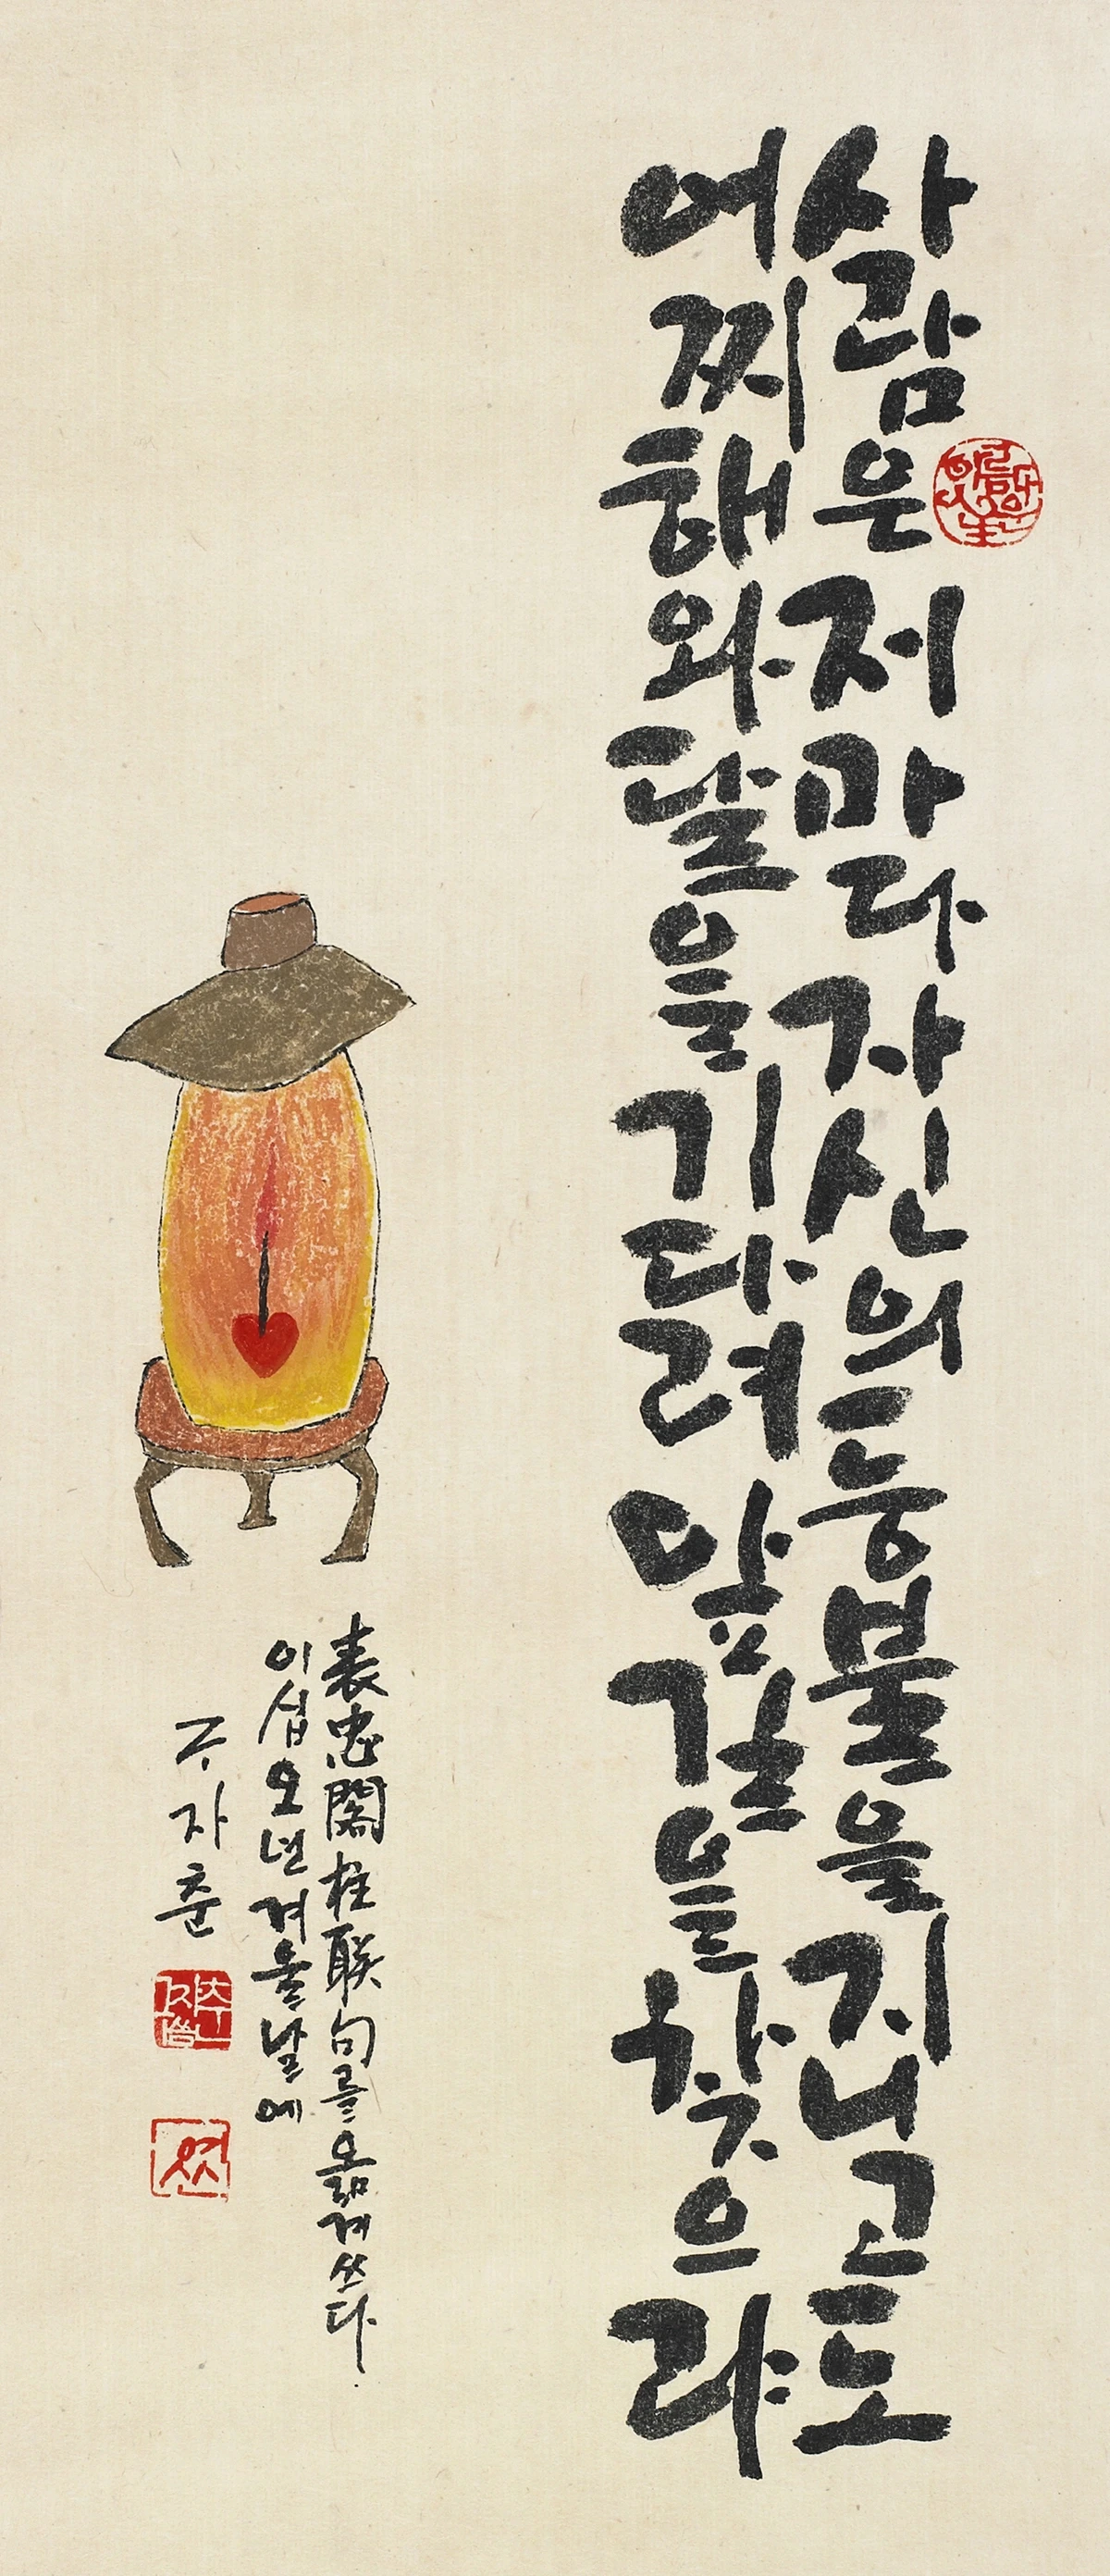 사람은 저마다 자신의 등불을 지니고도
어찌 해와 달을 기다려 앞길을 찾으랴
表忠閣柱聯句를 옮겨 쓰다
이십오년 겨울날에
주자춘